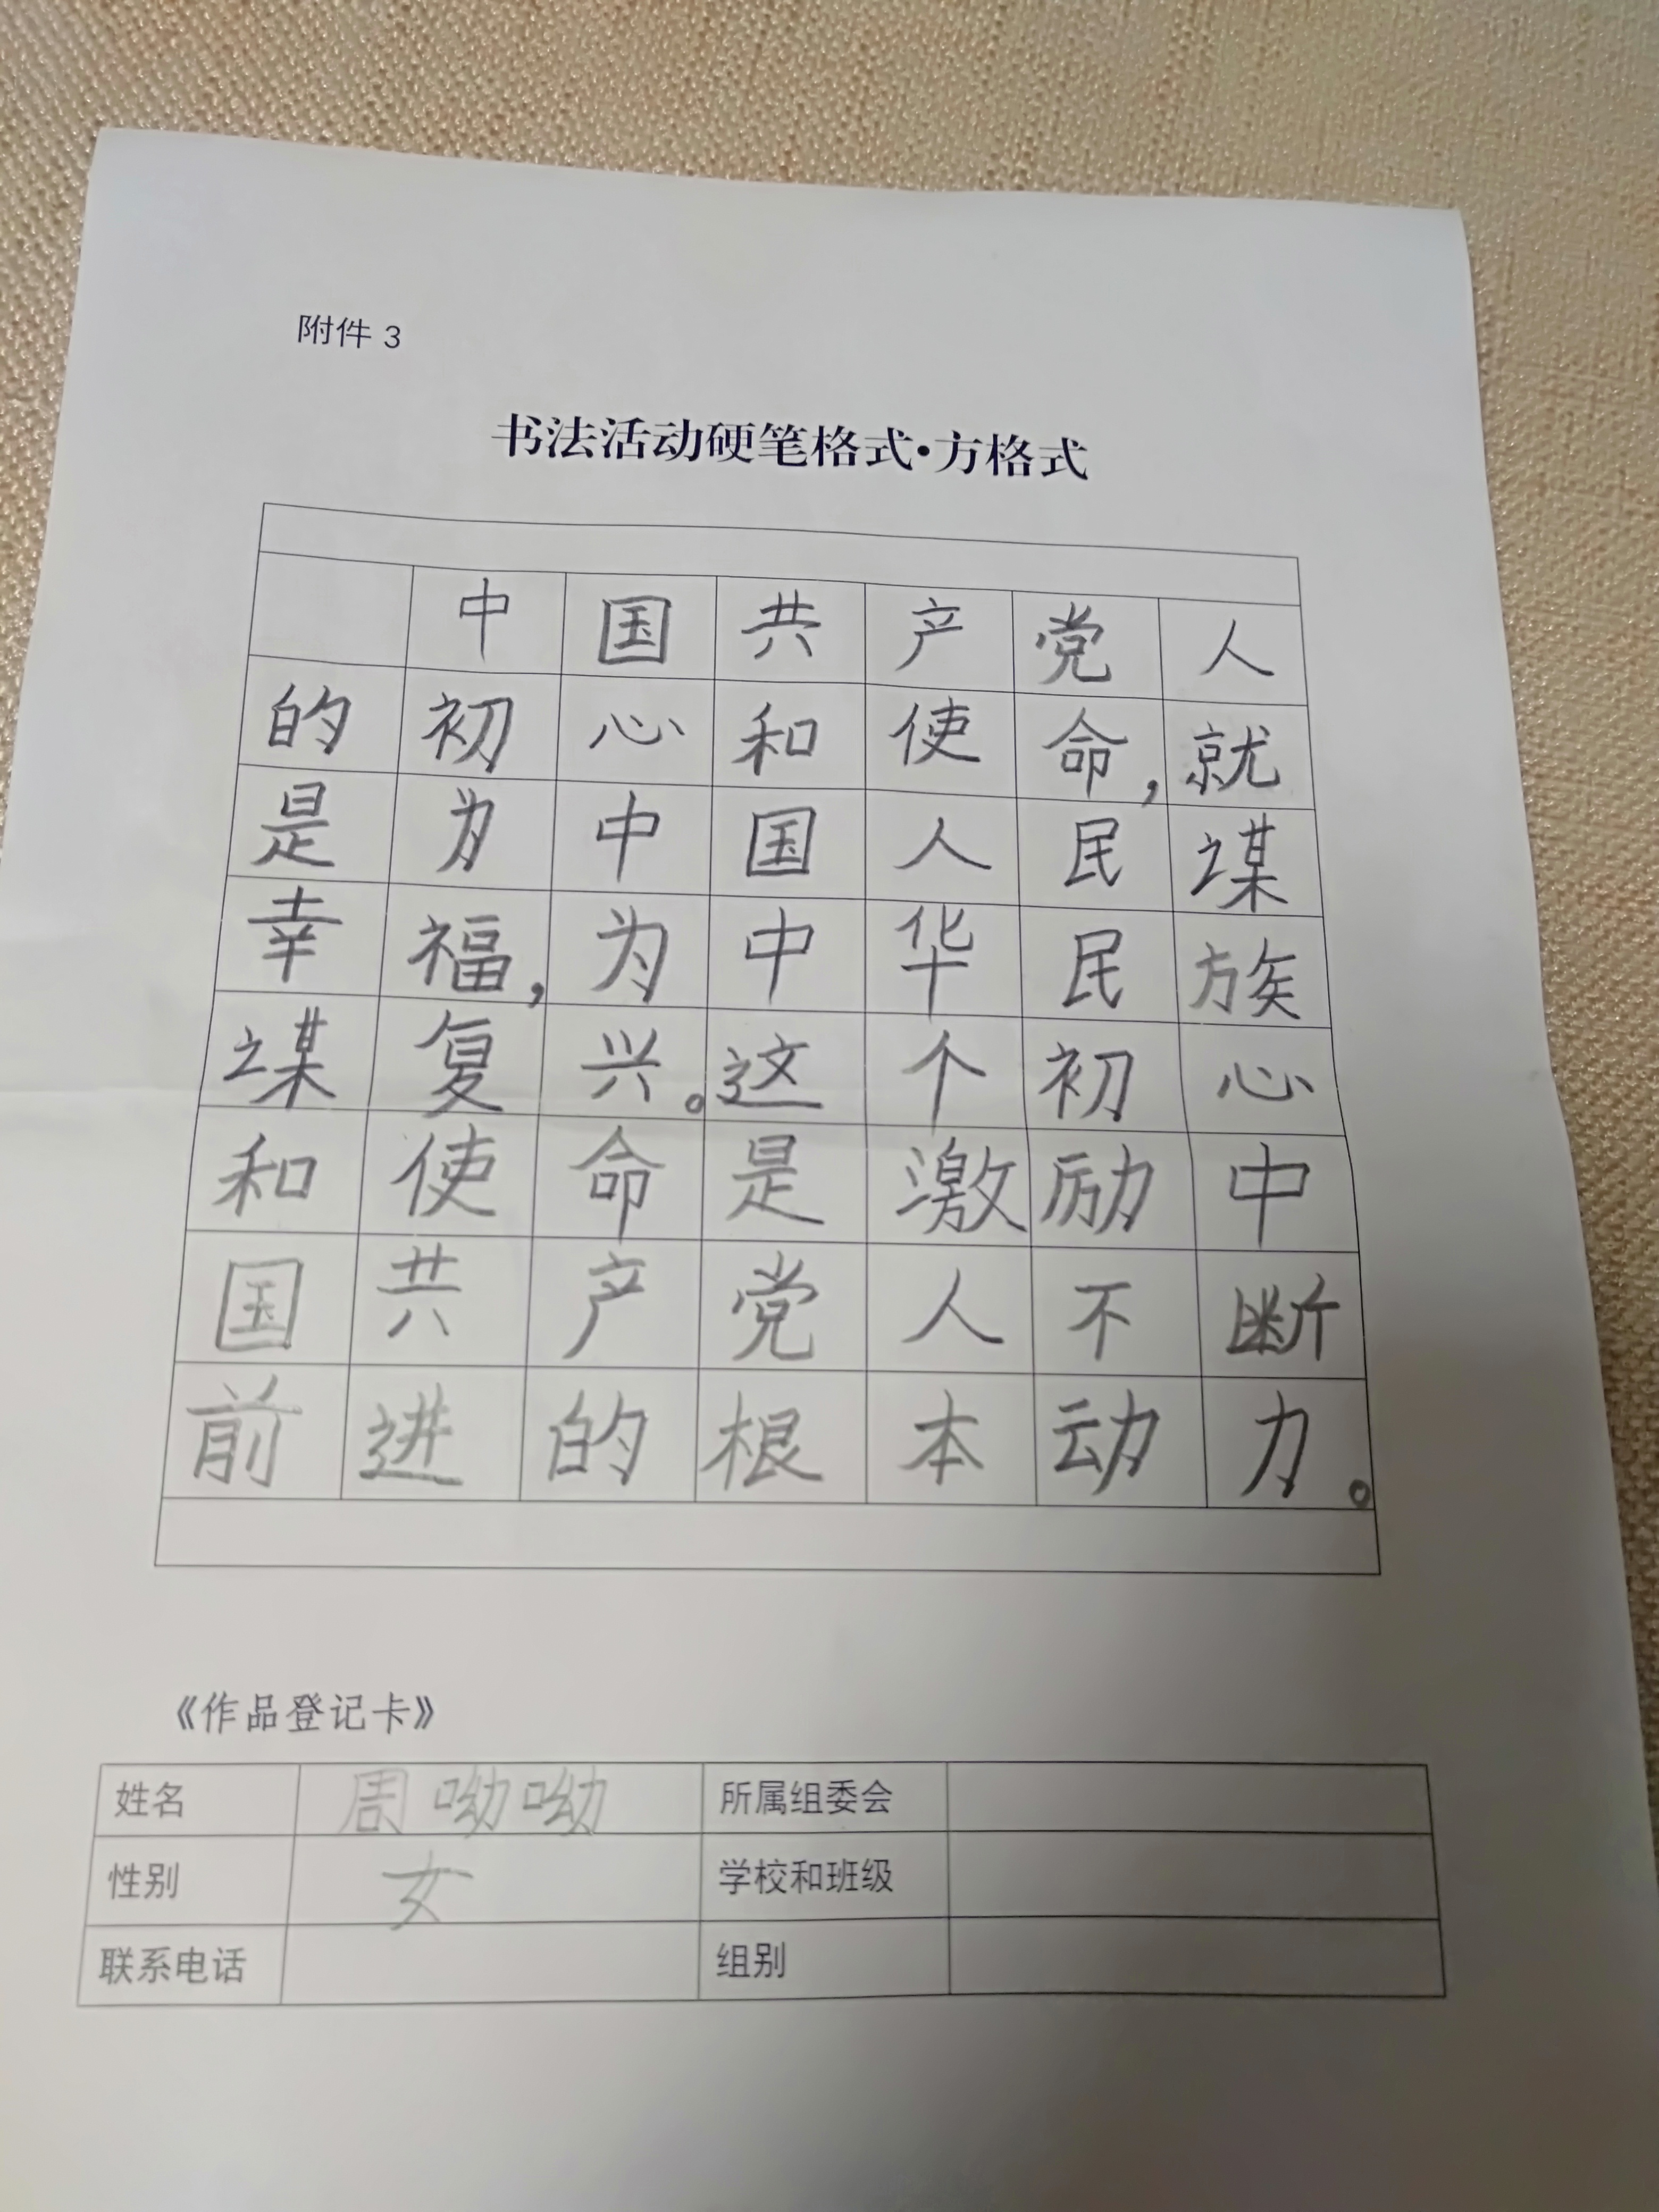 附件 3
书法活动硬笔格式·方格式
中国共产党人
的初心和使命，就
是为中国人民谋
幸福，为中华民族
谋复兴。这个初心
和使命是激励中
国共产党人不断
前进的根本动力。
《作品登记卡》
姓名 周呦呦 所属组委会
性别 女 学校和班级
联系电话 组别